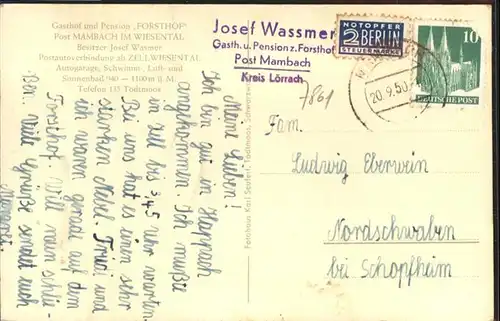 Gasthof und Pension „FORSTHOF"
Post MAMBACH IM WIESENTAL
Besitzer Josef Wasmer
Postautoverbindung ab ZELL WIESENTAL
Autogarage, Schwimm-, Luft- und
Sonnenbad 940 — 1100 m ü. M.
Telefon 133 Todtmoos
Josef Wassmer
Gasth. u. Pension z. Forsthof
Post Mambach
Kreis Lörrach
NOTOPFER
2 BERLIN
STEUERMARKE
10
DEUTSCHE POST
20.9.50
7861
Meine Lieben!
Ich bin gut in Happach
angekommen. Ich mußte
in Zell bis 3.45 Uhr warten.
Bei uns hat es einen sehr
starken Nebel. Trudi und
ich waren gerade auf dem
Forsthof. Will nun schlie-
ßen. Viele Grüße sendet euch
Fotohaus Karl Seufert, Todtmoos, Schwarzwald
Fam.
Ludwig Eberwein
Nordschwaben
bei Schopfheim